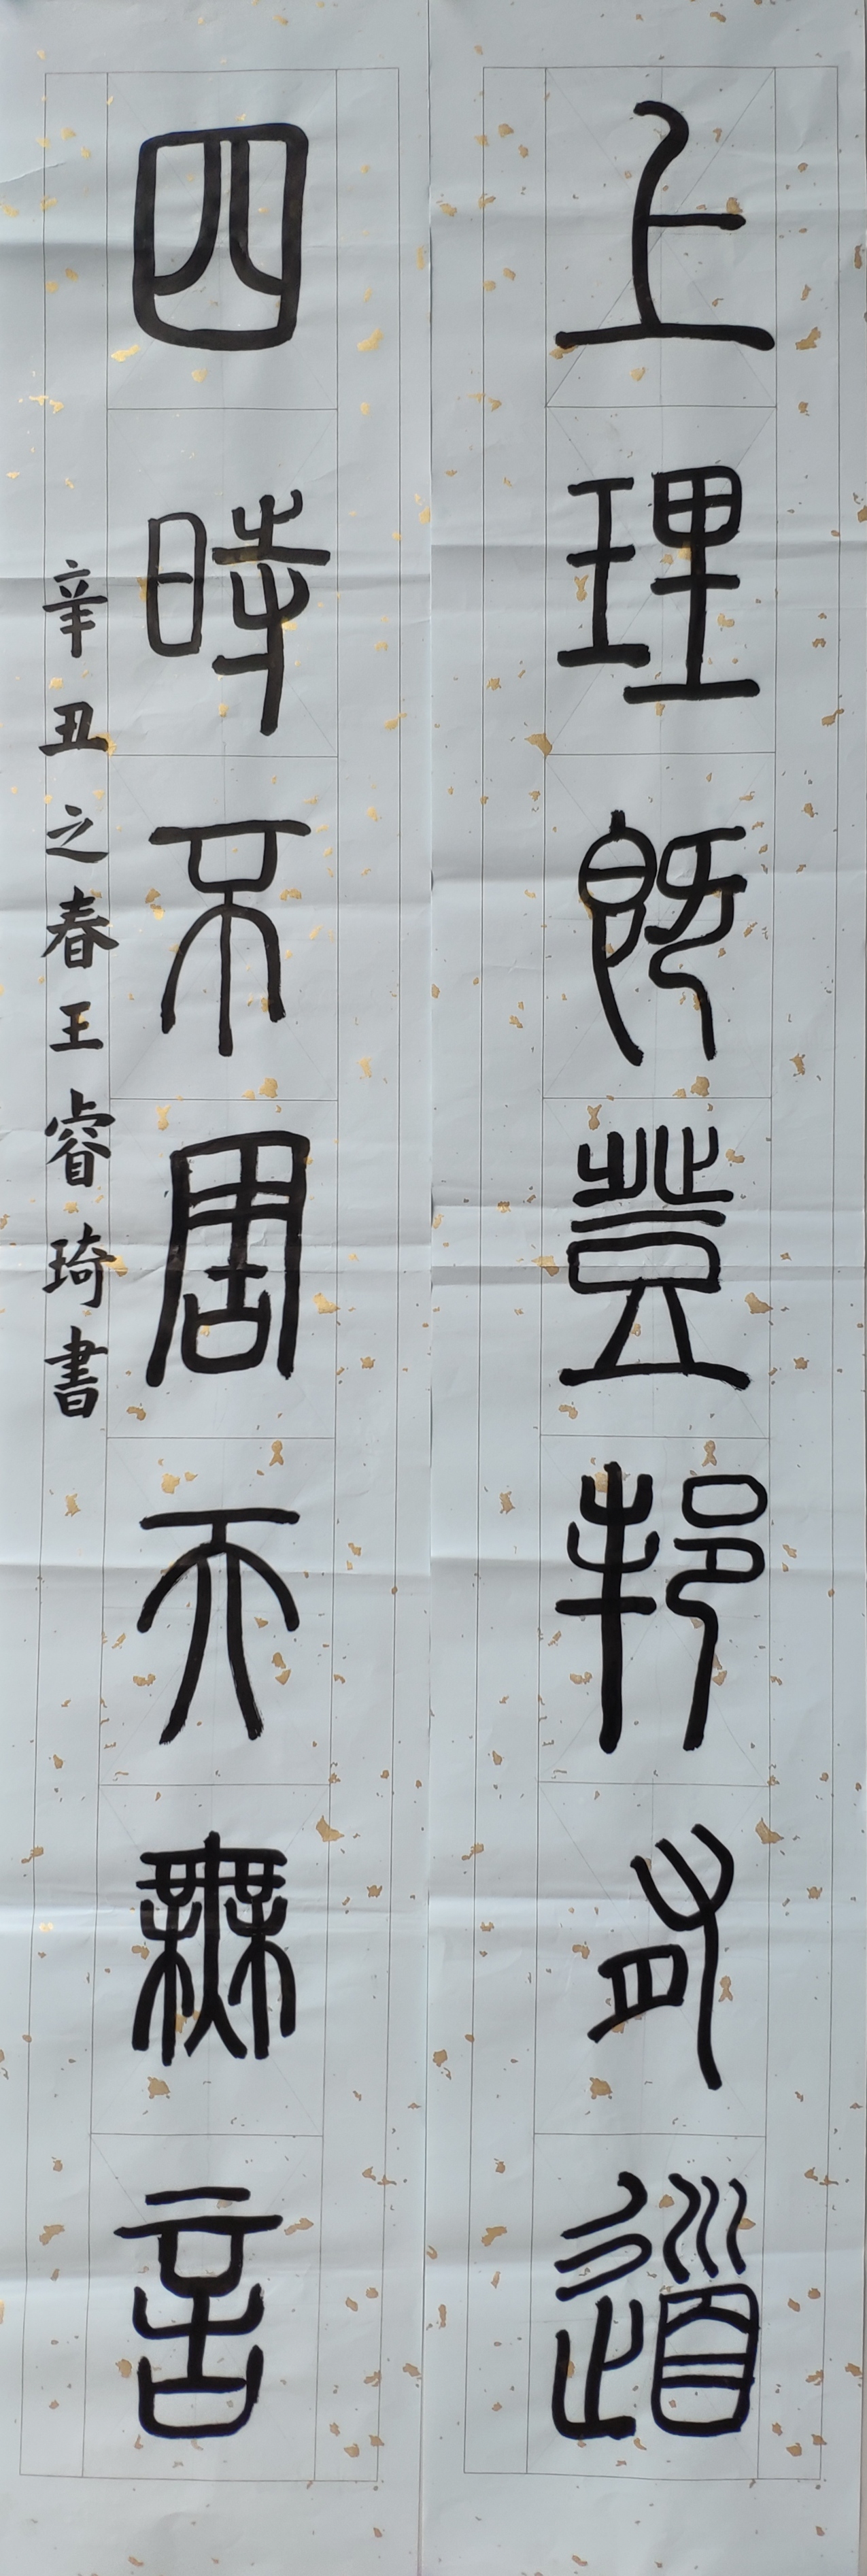 上理既登邦有道
四時不周天無言
辛丑之春王睿琦書